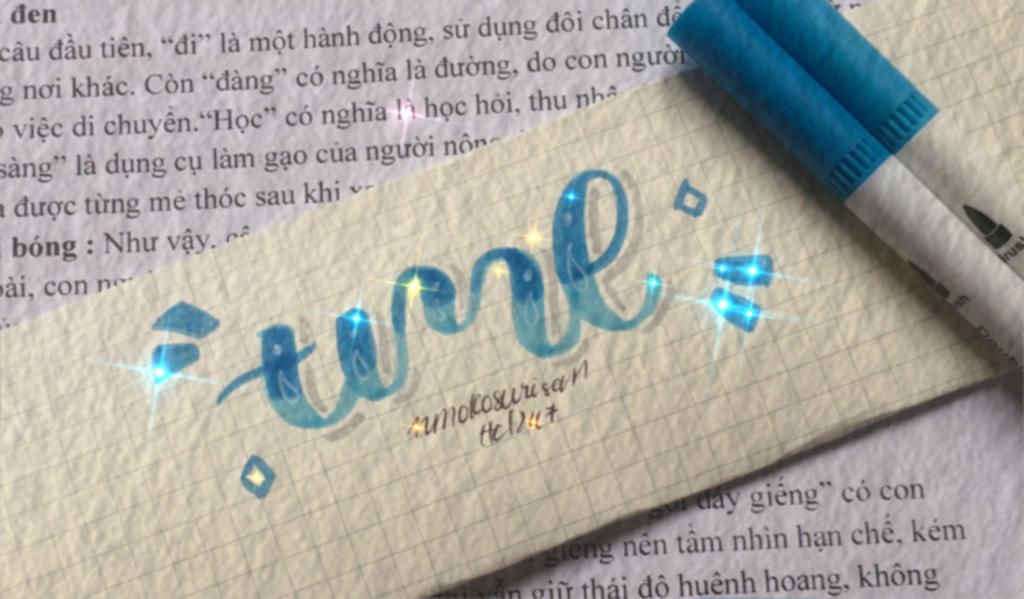 đen
câu đầu tiên, “đi” là một hành động, sử dụng đôi chân để
g nơi khác. Còn “đàng” có nghĩa là đường, do con người
việc di chuyển.“Học” có nghĩa là học hỏi, thu
sàng” là dụng cụ làm gạo của người
được từng mẻ thóc sau khi
bóng : Như vậy,
ài, con
time
dáy giếng” có con
giếng nên tầm nhìn hạn chế, kém
giữ thái độ huênh hoang, không